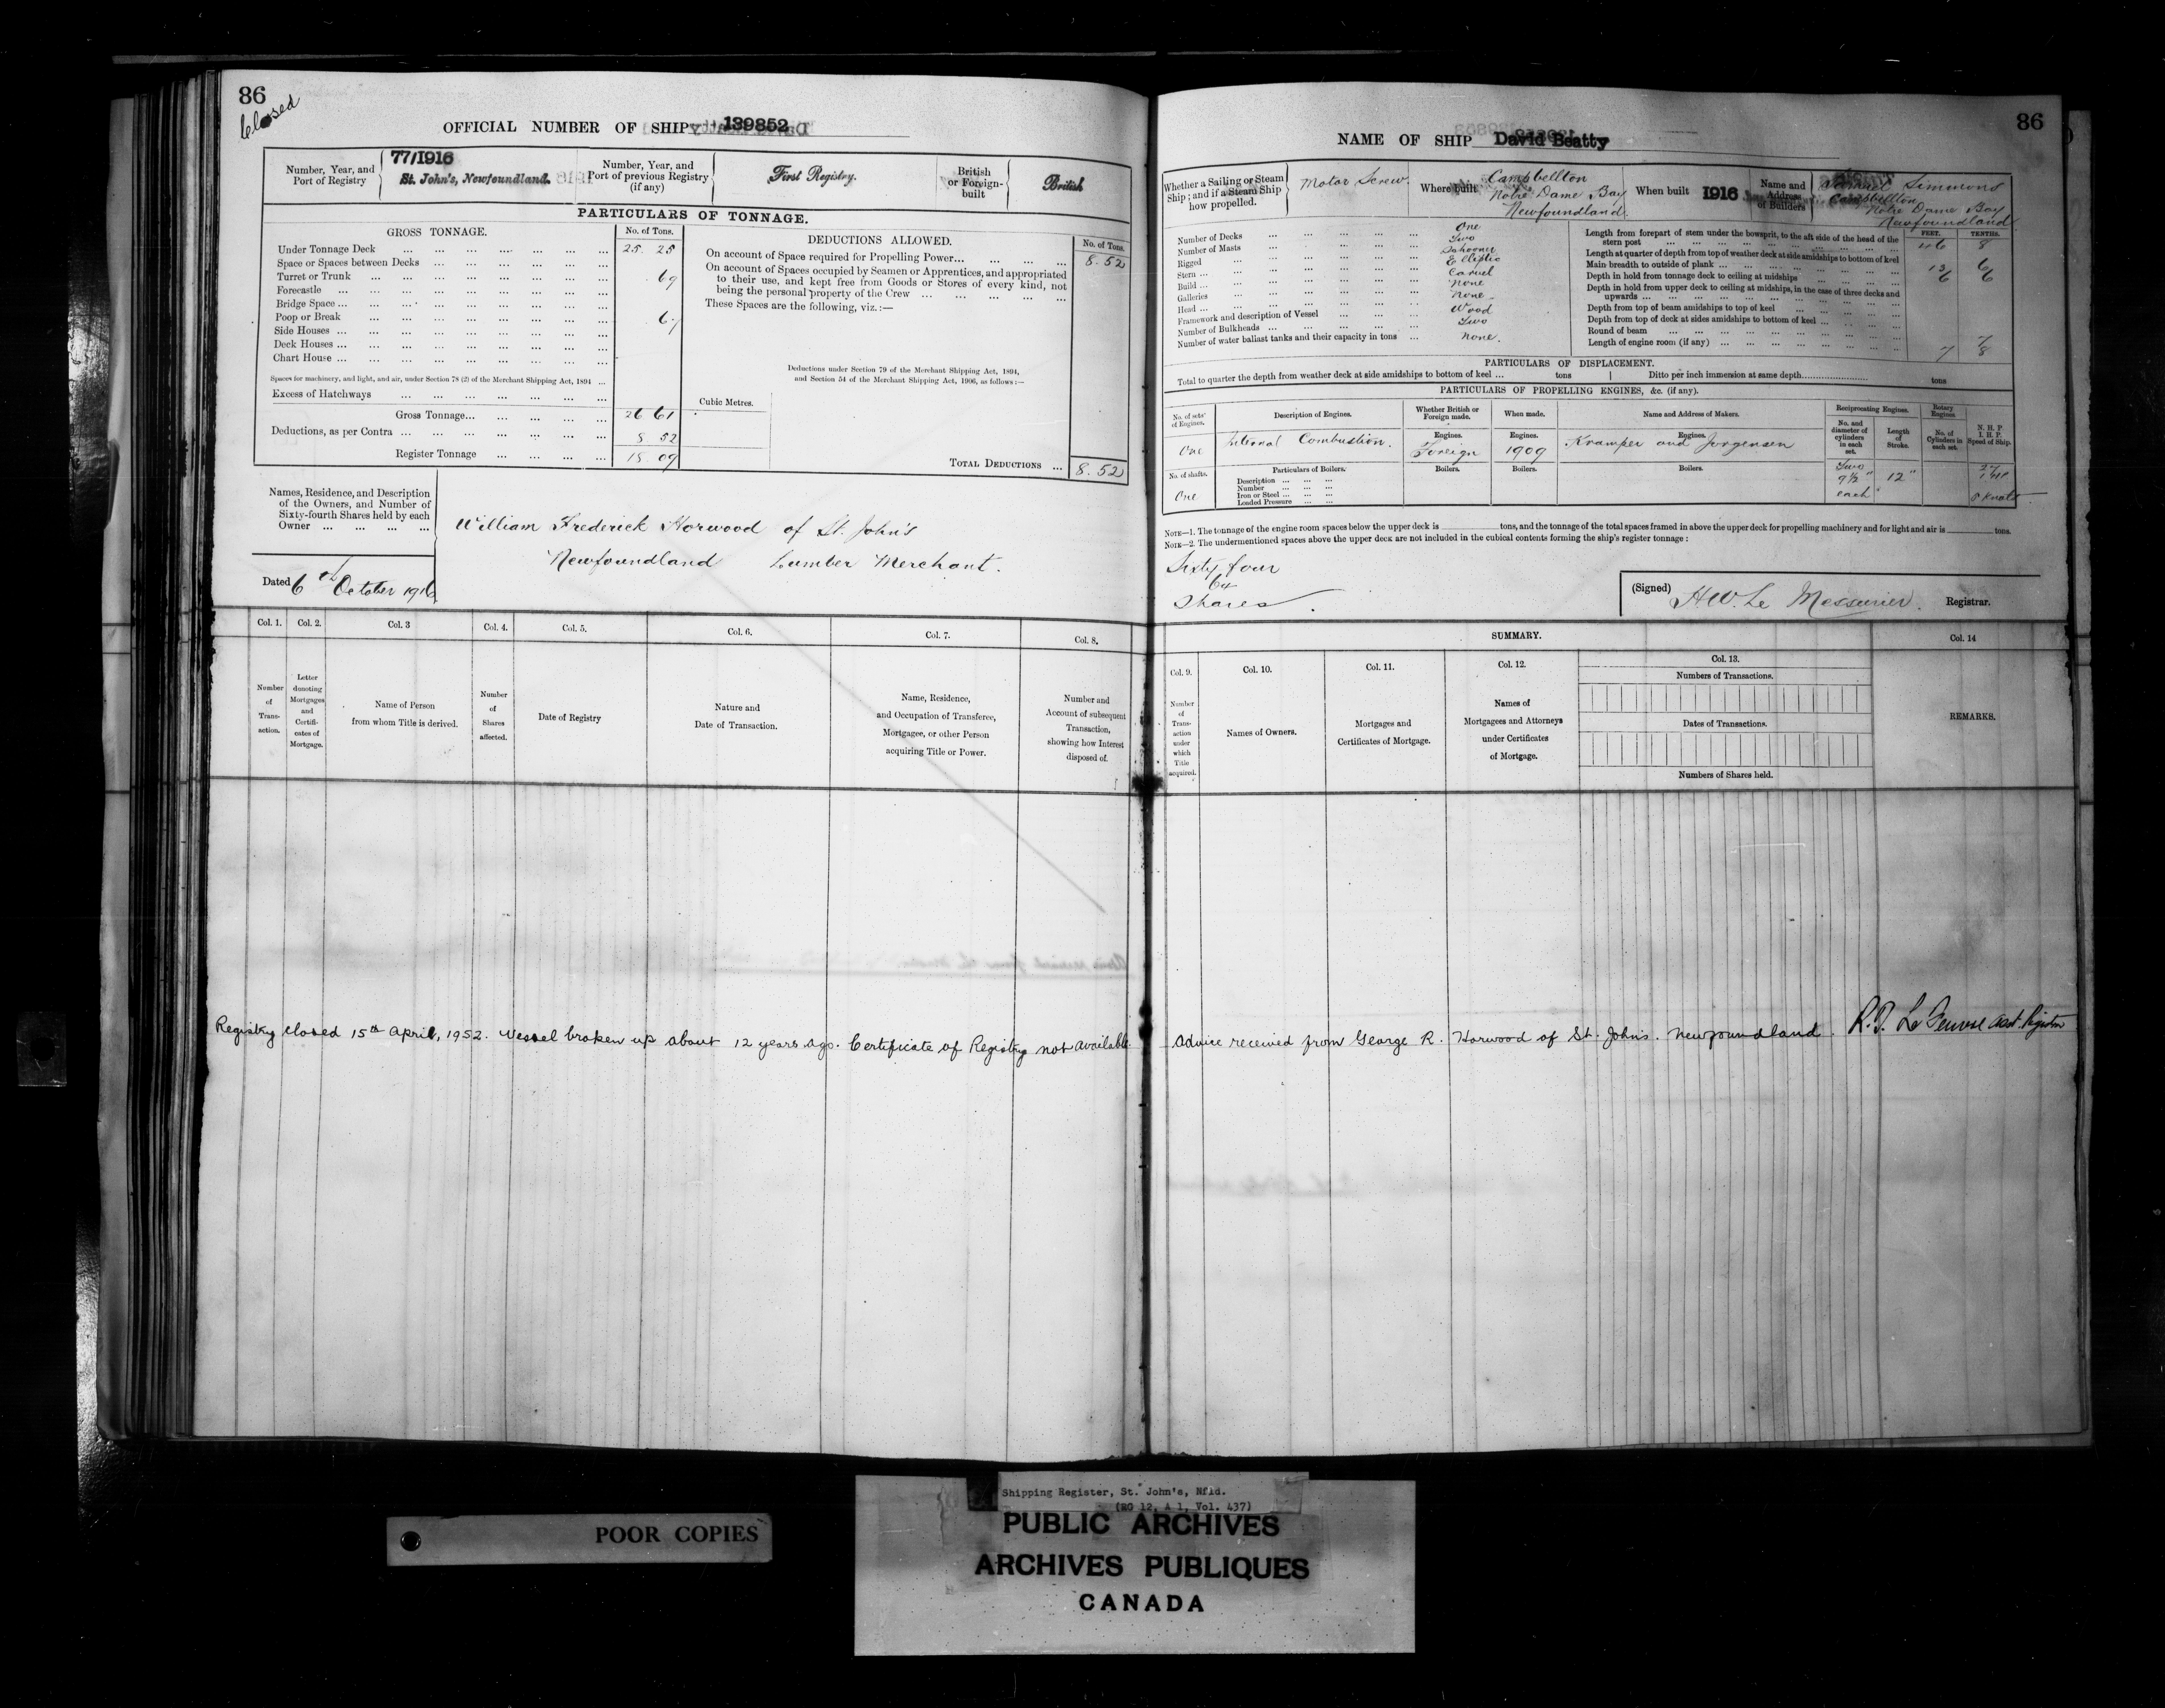 86
Closed
OFFICIAL NUMBER OF SHIP 139852
Number, Year, and Port of Registry
77/1916
St. John's, Newfoundland.
Number, Year, and Port of previous Registry (if any)
First Registry.
British or Foreign-built
British
PARTICULARS OF TONNAGE.
GROSS TONNAGE.
No. of Tons.
Under Tonnage Deck ... 25 25
Space or Spaces between Decks
Turret or Trunk ... .69
Forecastle
Bridge Space
Poop or Break ... .67
Side Houses
Deck Houses
Chart House
Spaces for machinery, and light, and air, under Section 78 (2) of the Merchant Shipping Act, 1894
Excess of Hatchways
Gross Tonnage... 26 61
Deductions, as per Contra ... 8 52
Register Tonnage ... 18 09
DEDUCTIONS ALLOWED.
No. of Tons.
On account of Space required for Propelling Power... 8.52
On account of Spaces occupied by Seamen or Apprentices, and appropriated
to their use, and kept free from Goods or Stores of every kind, not
being the personal property of the Crew
These Spaces are the following, viz.:—
Deductions under Section 79 of the Merchant Shipping Act, 1894,
and Section 54 of the Merchant Shipping Act, 1906, as follows:—
Cubic Metres.
TOTAL DEDUCTIONS ... 8.52
Names, Residence, and Description
of the Owners, and Number of
Sixty-fourth Shares held by each
Owner
William Frederick Horwood of St. John's
Newfoundland Lumber Merchant.
Dated 6th October 1916
Col. 1. Col. 2. Col. 3 Col. 4. Col. 5. Col. 6. Col. 7. Col. 8.
Number of Transaction.
Letter denoting Mortgages and Certificates of Mortgage.
Name of Person from whom Title is derived.
Number of Shares affected.
Date of Registry
Nature and Date of Transaction.
Name, Residence, and Occupation of Transferee, Mortgagee, or other Person acquiring Title or Power.
Number and Account of subsequent Transaction, showing how Interest disposed of.
Registry closed 15th April, 1952. Vessel broken up about 12 years ago. Certificate of Registry not available.
86
NAME OF SHIP David Beatty
Whether a Sailing or Steam Ship; and if a Steam Ship how propelled.
Motor Screw.
Where built
Campbellton
Notre Dame Bay
Newfoundland.
When built 1916
Name and Address of Builders
Samuel Simmons
Campbellton
Notre Dame Bay
Newfoundland.
Number of Decks ... One
Number of Masts ... Two
Rigged ... Schooner
Stern ... Elliptic
Build ... Carvel
Galleries ... None
Head ... None
Framework and description of Vessel ... Wood
Number of Bulkheads ... Two
Number of water ballast tanks and their capacity in tons ... None.
FEET. TENTHS.
Length from forepart of stem under the bowsprit, to the aft side of the head of the stern post ... 46 8
Length at quarter of depth from top of weather deck at side amidships to bottom of keel
Main breadth to outside of plank ... 13 6
Depth in hold from tonnage deck to ceiling at midships ... 6 6
Depth in hold from upper deck to ceiling at midships, in the case of three decks and upwards
Depth from top of beam amidships to top of keel
Depth from top of deck at sides amidships to bottom of keel
Round of beam ... 7
Length of engine room (if any) ... 7 8
PARTICULARS OF DISPLACEMENT.
Total to quarter the depth from weather deck at side amidships to bottom of keel ... tons
Ditto per inch immersion at same depth... tons
PARTICULARS OF PROPELLING ENGINES, &c. (if any).
No. of sets of Engines.
Description of Engines.
Whether British or Foreign made.
When made.
Name and Address of Makers.
Reciprocating Engines.
Rotary Engines.
No. and diameter of cylinders in each set.
Length of Stroke.
No. of Cylinders in each set.
N. H. P. I. H. P. Speed of Ship.
One
Internal Combustion.
Engines. Foreign
Engines. 1909
Engines.
Kramper and Jorgensen
Two 9½" each
12"
8 Knots
No. of shafts.
One
Particulars of Boilers.
Boilers. Boilers. Boilers.
Description
Number
Iron or Steel
Loaded Pressure
NOTE—1. The tonnage of the engine room spaces below the upper deck is tons, and the tonnage of the total spaces framed in above the upper deck for propelling machinery and for light and air is tons.
NOTE—2. The undermentioned spaces above the upper deck are not included in the cubical contents forming the ship's register tonnage:
Sixty four
64
Shares.
(Signed) H.W. Le Messurier. Registrar.
SUMMARY.
Col. 9. Col. 10. Col. 11. Col. 12. Col. 13. Col. 14
Number of Transaction under which Title acquired.
Names of Owners.
Mortgages and Certificates of Mortgage.
Names of Mortgagees and Attorneys under Certificates of Mortgage.
Numbers of Transactions.
Dates of Transactions.
Numbers of Shares held.
REMARKS.
Advice received from George R. Horwood of St. John's. Newfoundland.
Asst. Registrar
POOR COPIES
Shipping Register, St. John's, Nfld.
(RG 12, A 1, Vol. 437)
PUBLIC ARCHIVES
ARCHIVES PUBLIQUES
CANADA